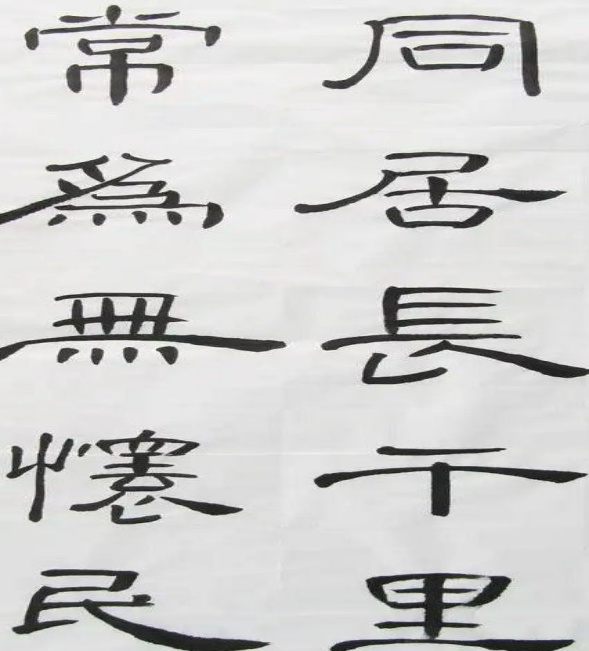 同居長干里
常爲無懷民